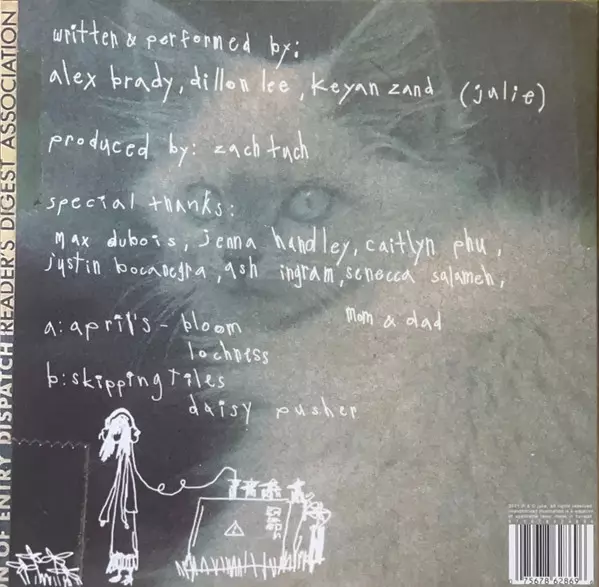 written & performed by:
alex brady, dillon lee, keyan zand (julie)
produced by: zach tuch
special thanks:
max dubois, jenna handley, caitlyn phu,
justin bocanegra, ash ingram, senecca salameh,
mom & dad
a: april's - bloom
lochness
b: skipping tiles
daisy pusher
N OF ENTRY DISPATCH READER'S DIGEST ASSOCIATION
75678 62869